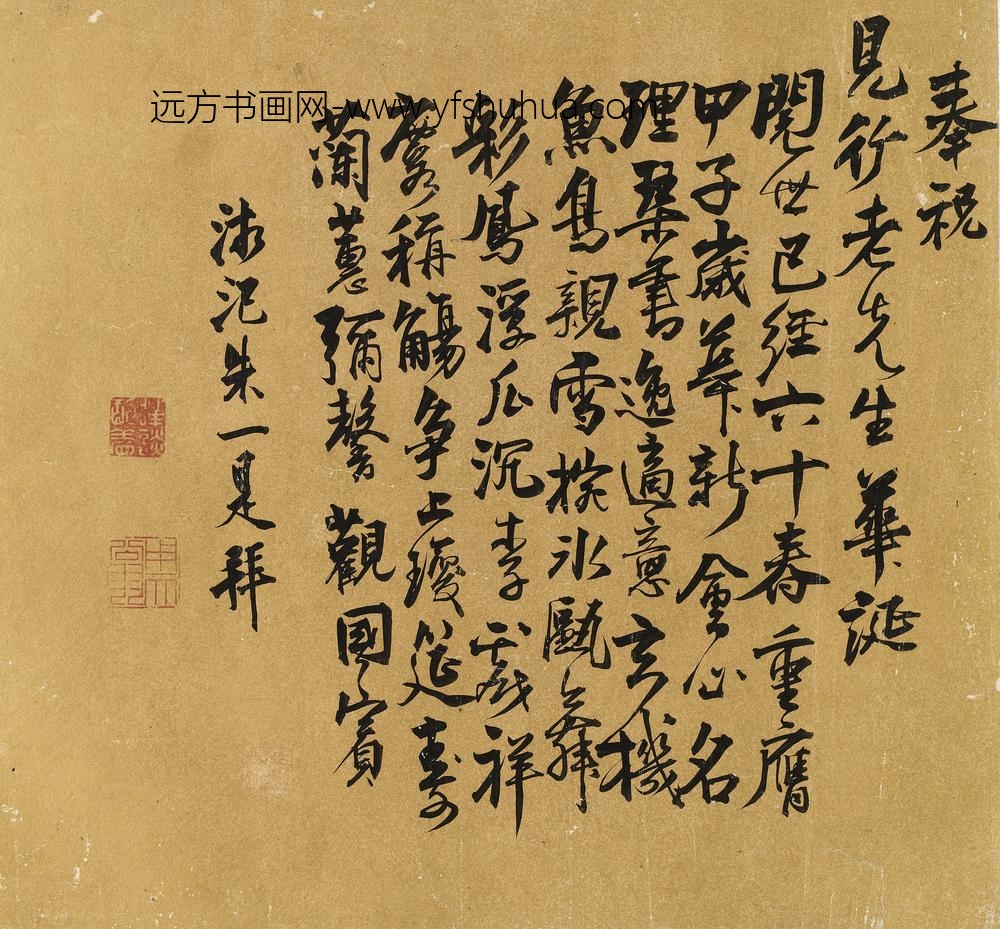 远方书画网-www.yfshuhua.com
奉祝
見行老先生華誕
閱世已經六十春重膺
甲子歲華新會心名
理琴書逸適意玄機
魚鳥親雪椀冰甌舞
彩鳳浮瓜沉李戲祥
麐稱觴爭上瓊筵壽
蘭蕙彌馨觀國賓
朱一是拜